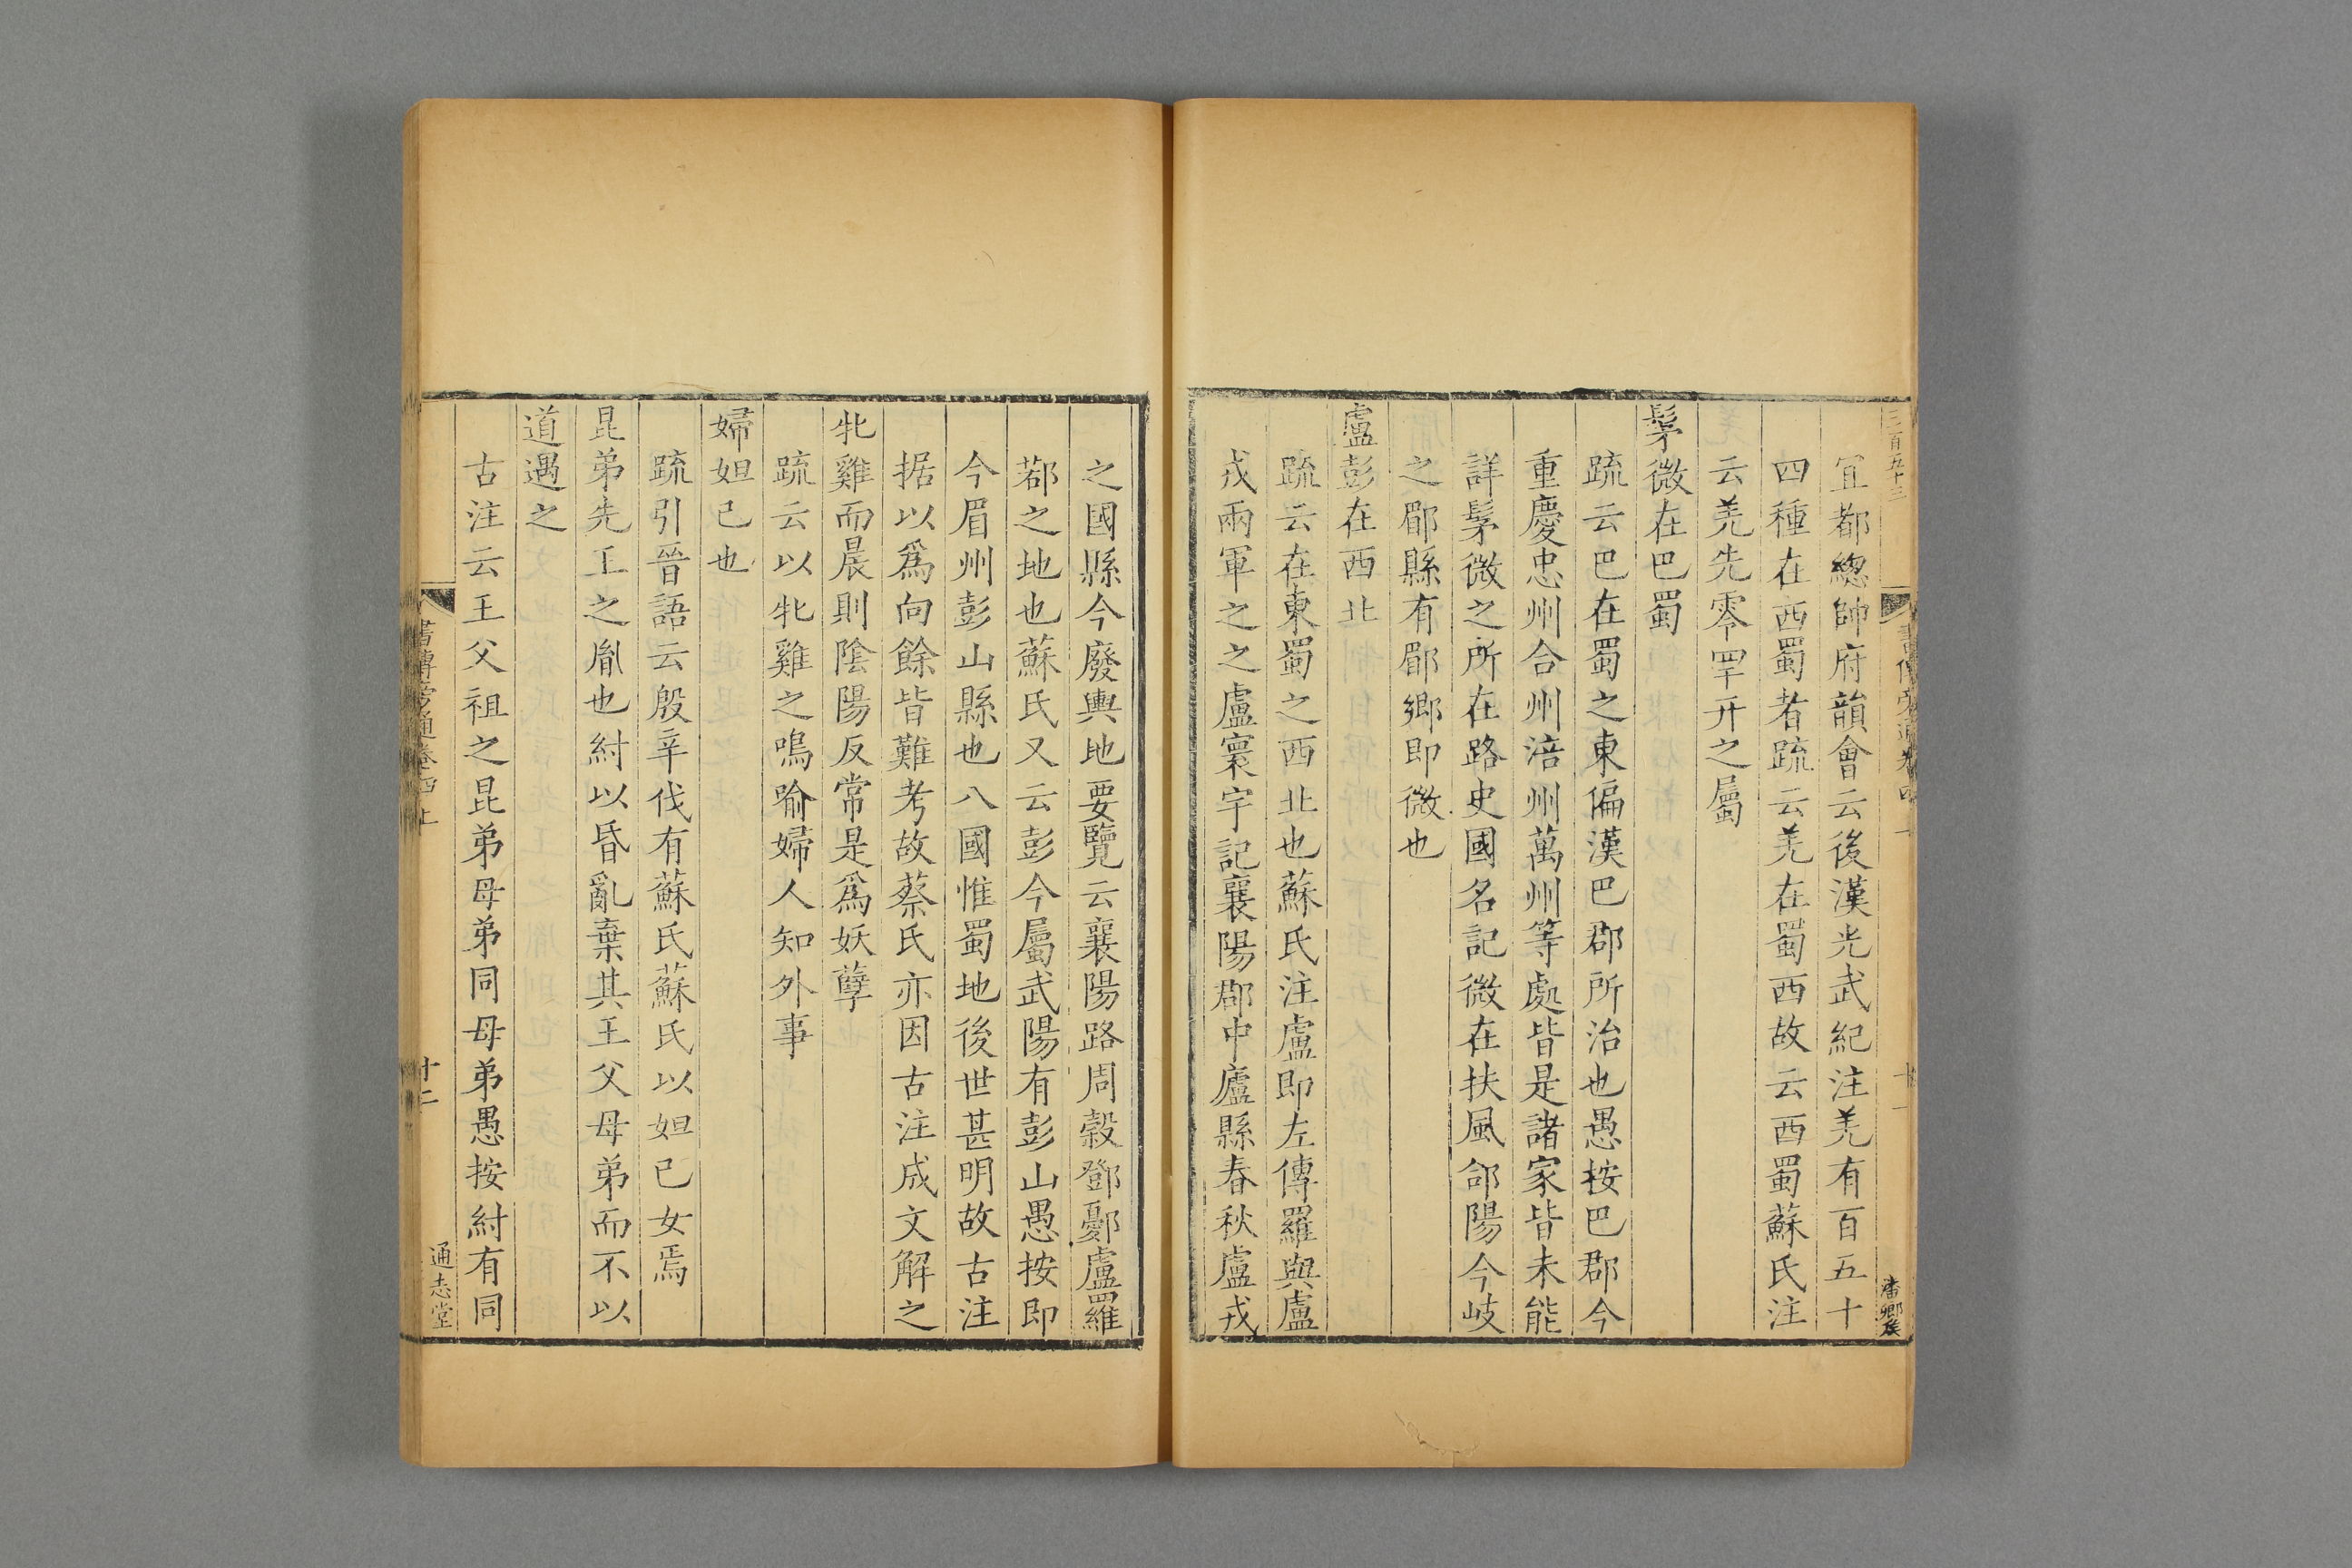 三百五十三
宜都總帥府韻會云後漢光武紀注羌有百五十
四種在西蜀者疏云羌在蜀西故云西蜀蘇氏注
云羌先零罕幵之屬
髳微在巴蜀
疏云巴在蜀之東偏漢巴郡所治也愚按巴郡今
重慶忠州合州涪州萬州等處皆是諸家皆未能
詳髳微之所在路史國名記微在扶風郃陽今岐
之郿縣有郿鄉即微也
盧彭在西北
疏云在東蜀之西北也蘇氏注盧即左傳羅與盧
戎兩軍之之盧寰宇記襄陽郡中廬縣春秋盧戎
之國縣今廢輿地要覽云襄陽路周榖鄧鄾盧羅
鄀之地也蘇氏又云彭今屬武陽有彭山愚按即
今眉州彭山縣也八國惟蜀地後世甚明故古注
据以爲向餘皆難考故蔡氏亦因古注成文解之
牝雞而晨則陰陽反常是爲妖孽
疏云以牝雞之鳴喻婦人知外事
婦妲己也
疏引晉語云殷辛伐有蘇氏蘇氏以妲己女焉
昆弟先王之胤也紂以昏亂棄其王父母弟而不以
道遇之
古注云王父祖之昆弟母弟同母弟愚按紂有同
書傳旁通卷四上
十二
通志堂